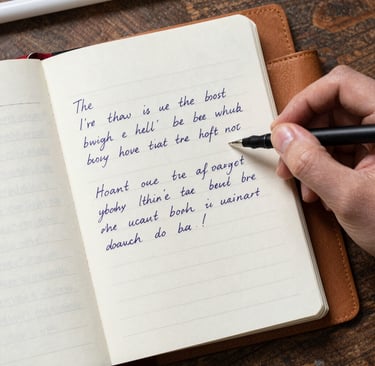 The
I're thaw is ue the bost
bwigh e hell' be bee whub
bouy hove tiat tre hoft not
Hoant oue tre af oarget
ybohy lthin'e tae beul bre
ohe ucaut borh ii uainart
doauch do ba.!